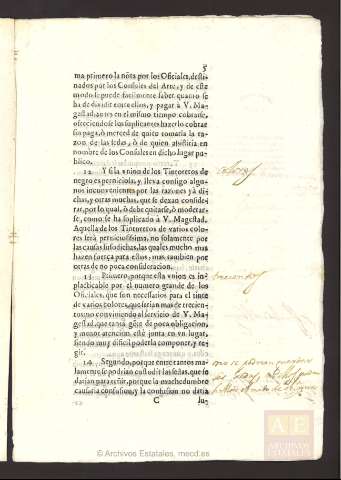 5
ma primero la nòta por los Oficiales, desti-
nados por los Consules del Arte, y de este
modo se puede facilmente saber quanto se
ha de diuidir entre ellos, y pagar à V. Ma-
gestad antes en el mismo tiempo cobrarse,
ofreciendose los suplicantes hazerlo cobrar
sin paga, ò merced de quien tomaría la ra-
zon de las sedas, ò de quien assistiria en
nombre de los Consules en dicho lugar pu-
blico.
12 Y si la vnion de los Tintoreros de
negro es perniciosa, y lleva consigo algu-
nos inconuenientes por las razones yà di-
chas, y otras muchas, que se dexan conside-
rar, por lo qual, ò debe quitarse, ò moderar-
se, como se ha suplicado à V. Magestad.
Aquella de los Tintoreros de varios colo-
res será perniciosissima, no solamente por
las causas susodichas, las quales mucho mas
hazen fuerça para ellos, mas tambien por
otras de no poca consideracion.
13 Primero, porque esta vnion es in-
practicable por el numero grande de los
Oficiales, que son necessarios para el tinte
de varios colores, que serian mas de trecien-
tos, no conviniendo al servicio de V. Ma-
gestad, que tanta gente de poca obligacion,
y menor atencion estè junta en vn lugar,
siendo muy dificil poderla componer, y re-
gir.
14 Segundo, porque entre tantos ma-
lamente se podrian custodir las señas, que se
darian para teñir, porque la muchedumbre
causaria confusion, y la confusion no daria
C
lu-
© Archivos Estatales, mecd.es
ARCHIVOS
ESTATALES